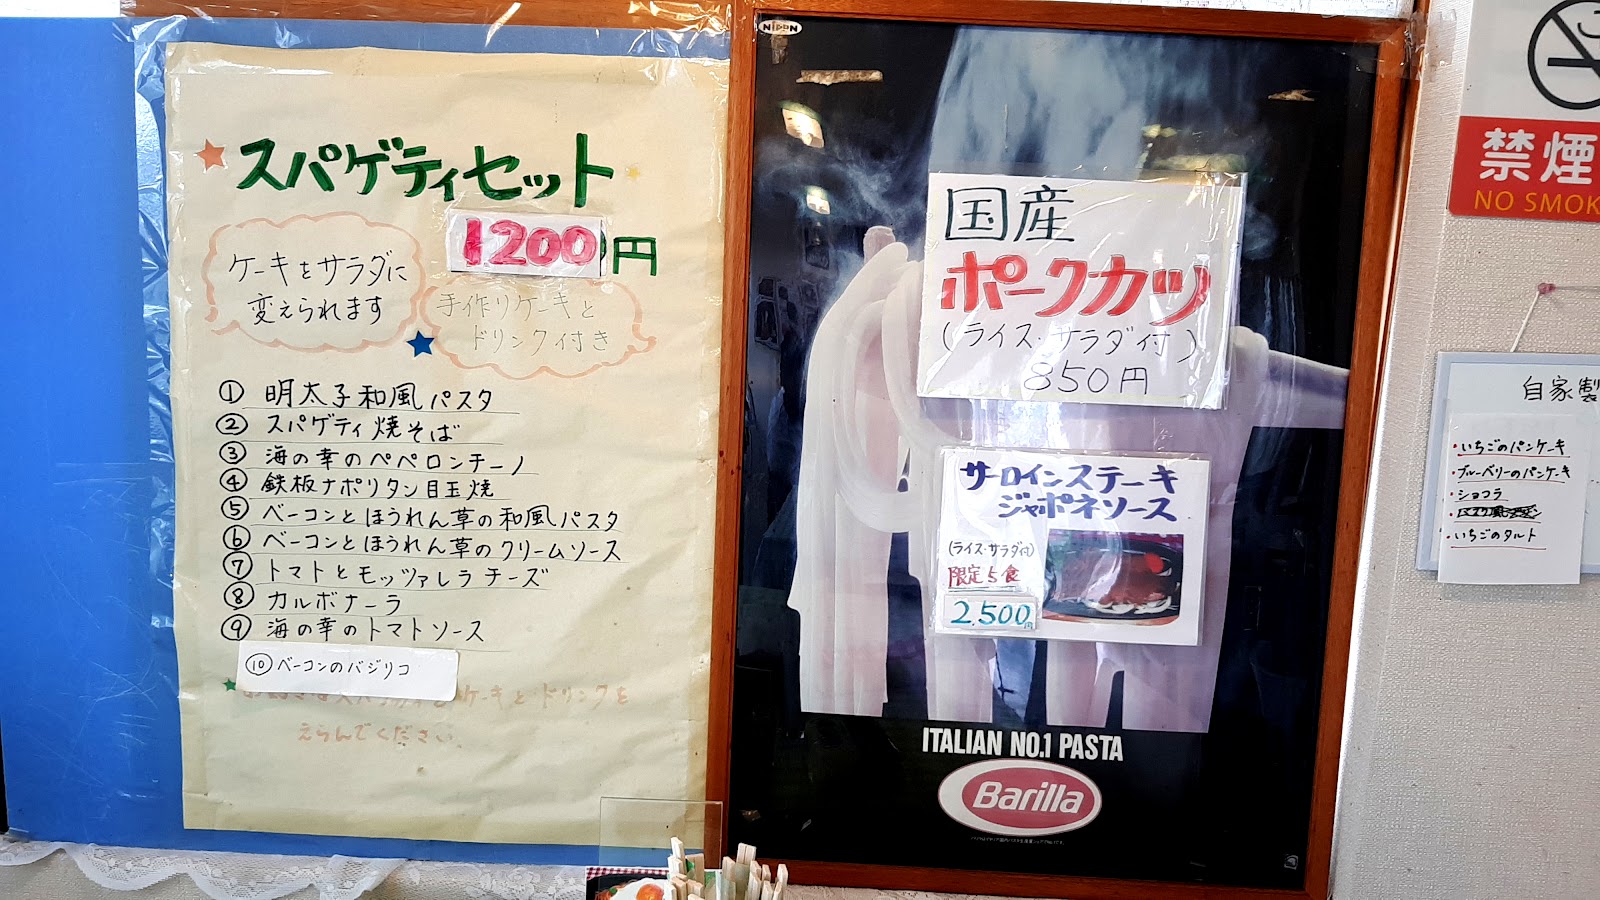 スパゲティセット
1200円
ケーキをサラダに
変えられます
手作りケーキと
ドリンク付き
① 明太子和風パスタ
② スパゲティ焼そば
③ 海の幸のペペロンチーノ
④ 鉄板ナポリタン目玉焼
⑤ ベーコンとほうれん草の和風パスタ
⑥ ベーコンとほうれん草のクリームソース
⑦ トマトとモッツァレラチーズ
⑧ カルボナーラ
⑨ 海の幸のトマトソース
⑩ ベーコンのバジリコ
ケーキとドリンクを
えらんでください。
NIPPN
国産
ポークカツ
(ライス・サラダ付)
850円
サーロインステーキ
ジャポネソース
(ライス・サラダ付)
限定5食
2,500円
ITALIAN NO.1 PASTA
Barilla
禁煙
NO SMOK
自家製
・いちごのパンケーキ
・ブルーベリーのパンケーキ
・ショコラ
・いちごのタルト